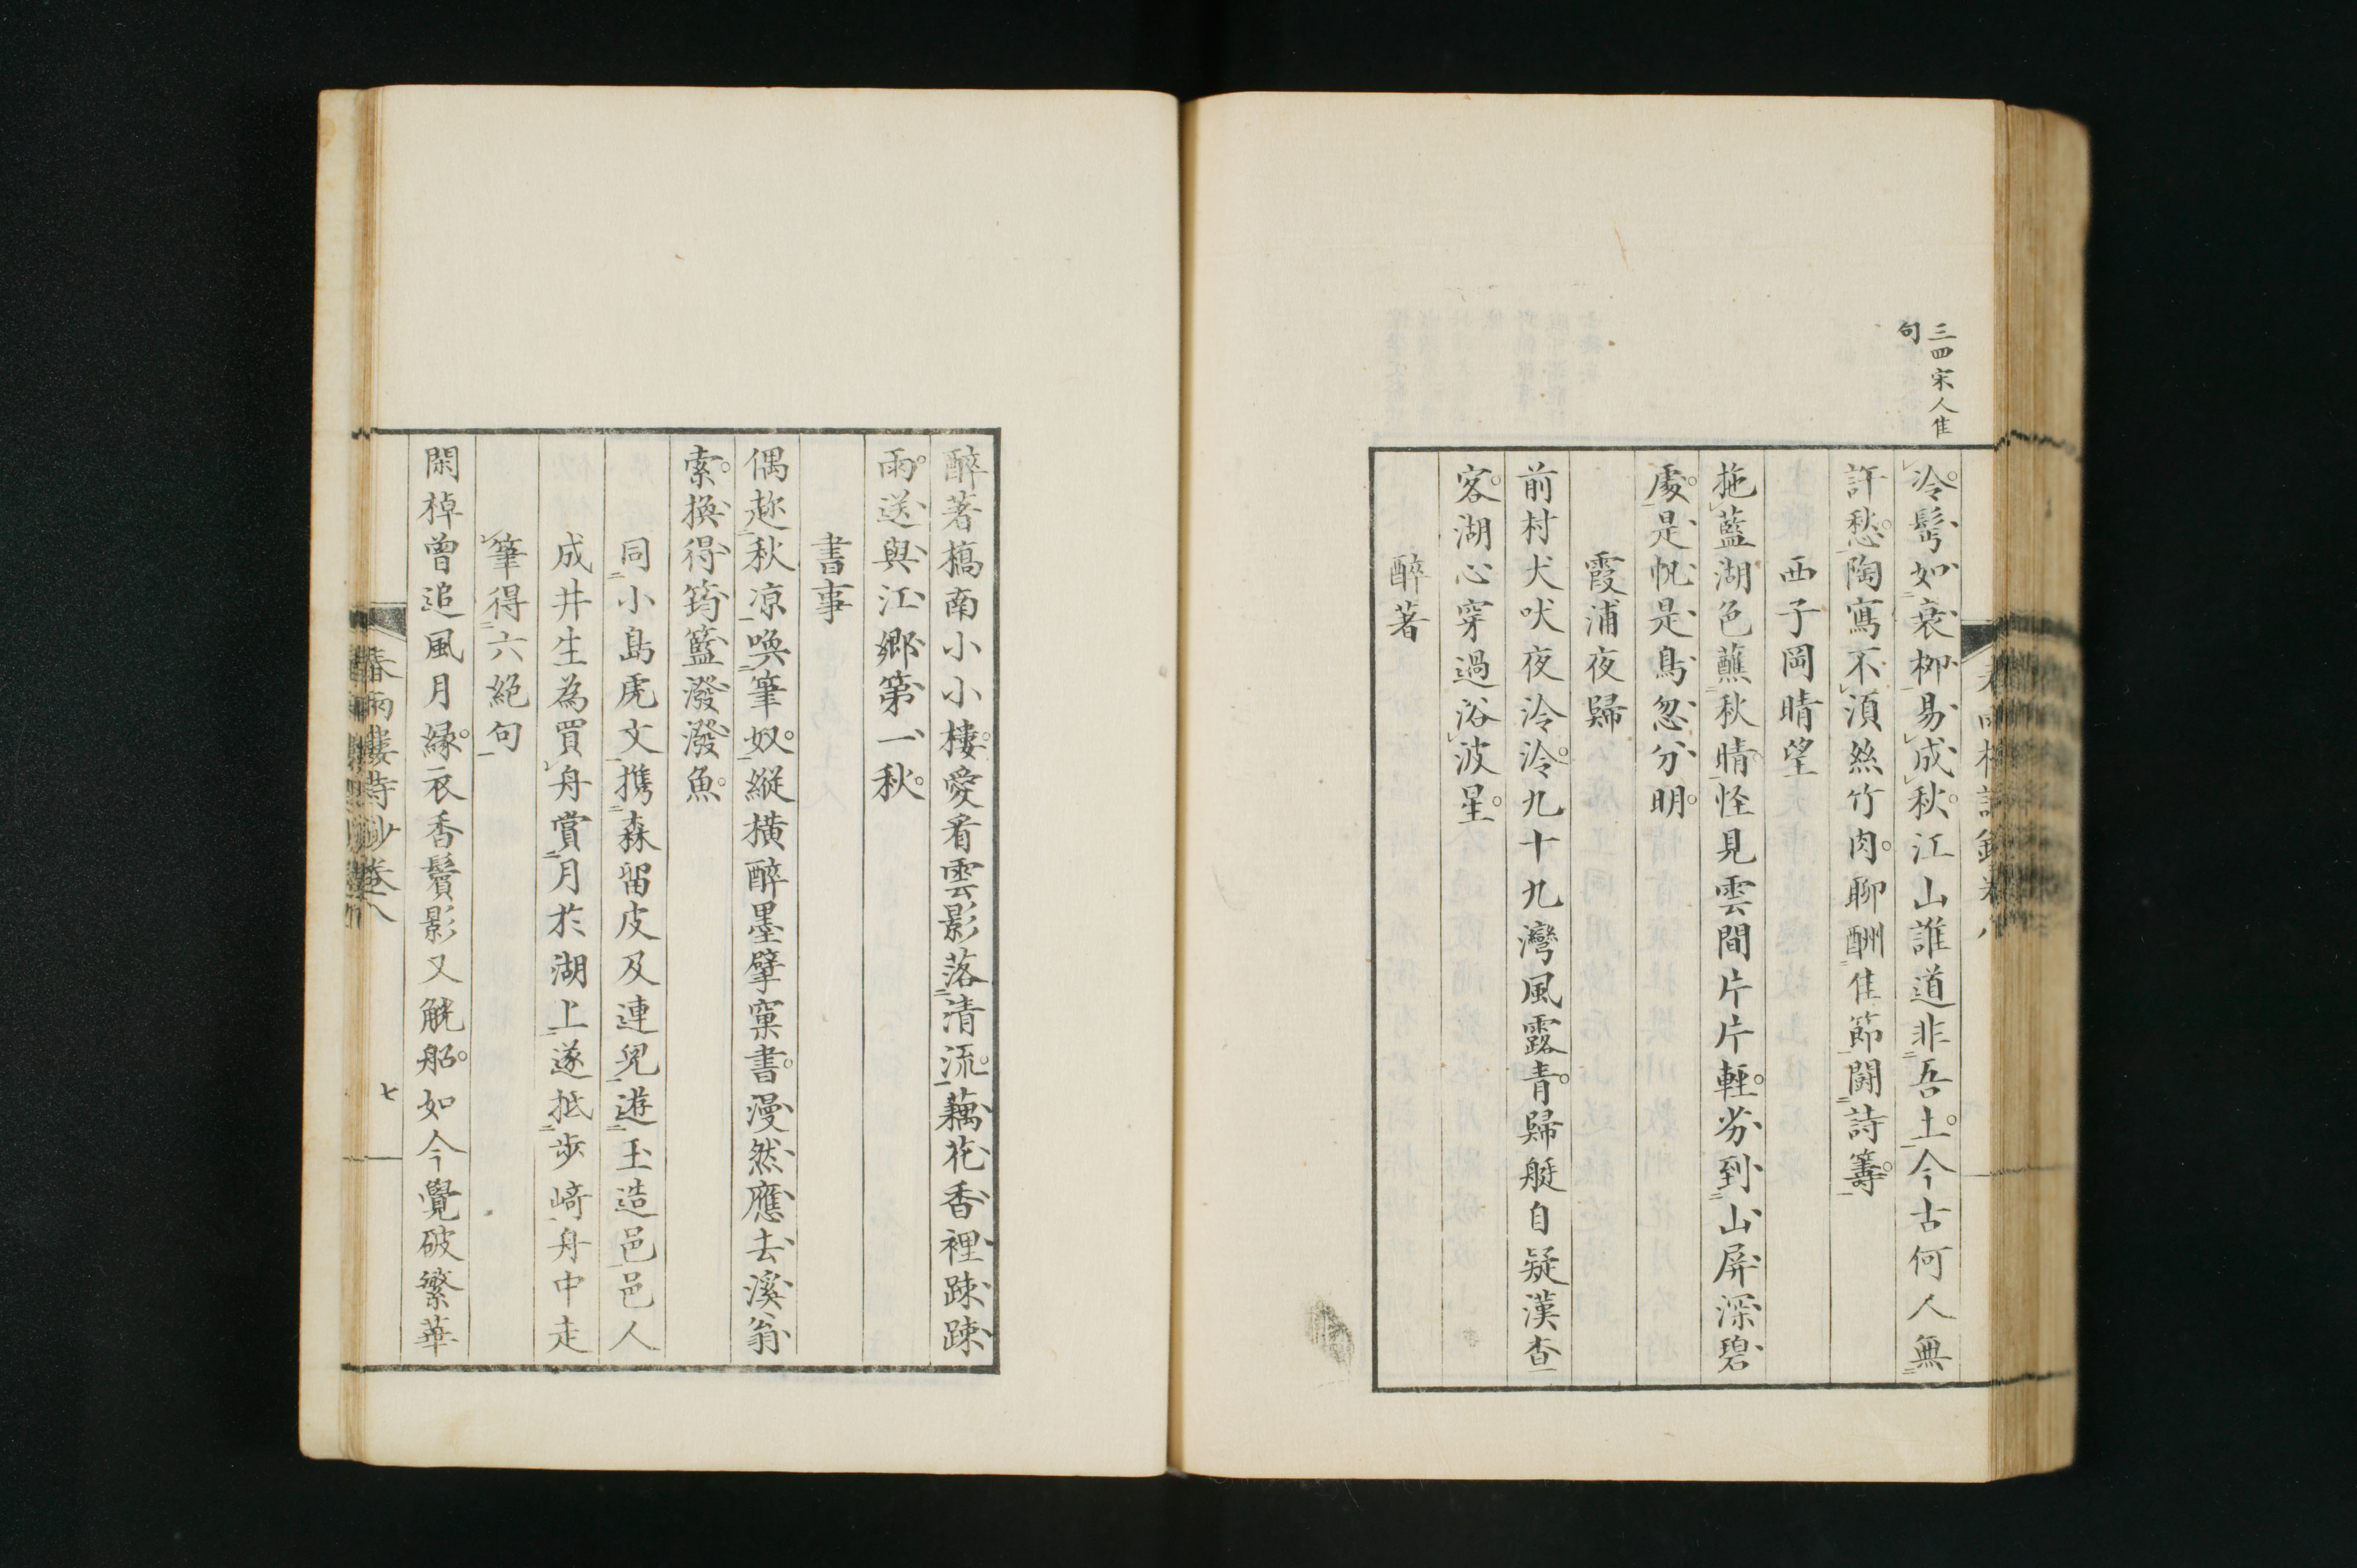 三四宋人佳
句
冷髩如衰柳易成秋江山誰道非吾土今古何人無
許愁陶寫不須絲竹肉聊酬佳節鬪詩籌
西子岡晴望
拖藍湖色蘸秋晴怪見雲間片片輕労到山屏深碧
處是帆是鳥忽分明
霞浦夜歸
前村犬吠夜泠泠九十九灣風露青歸艇自疑漢查
客湖心穿過浴波星
醉著
醉著橋南小小樓愛看雲影落清流藕花香裡踈踈
雨送與江郷第一秋
書事
偶趂秋凉喚筆奴縱橫醉墨擘窠書漫然應去溪翁
索換得筠籃潑潑魚
同小島虎文携森留皮及連兒遊玉造邑邑人
成井生為買舟賞月於湖上遂抵步崎舟中走
筆得六絕句
閑棹曾追風月緣衣香鬢影又觥船如今覺破繁華
春雨樓詩鈔卷八
七